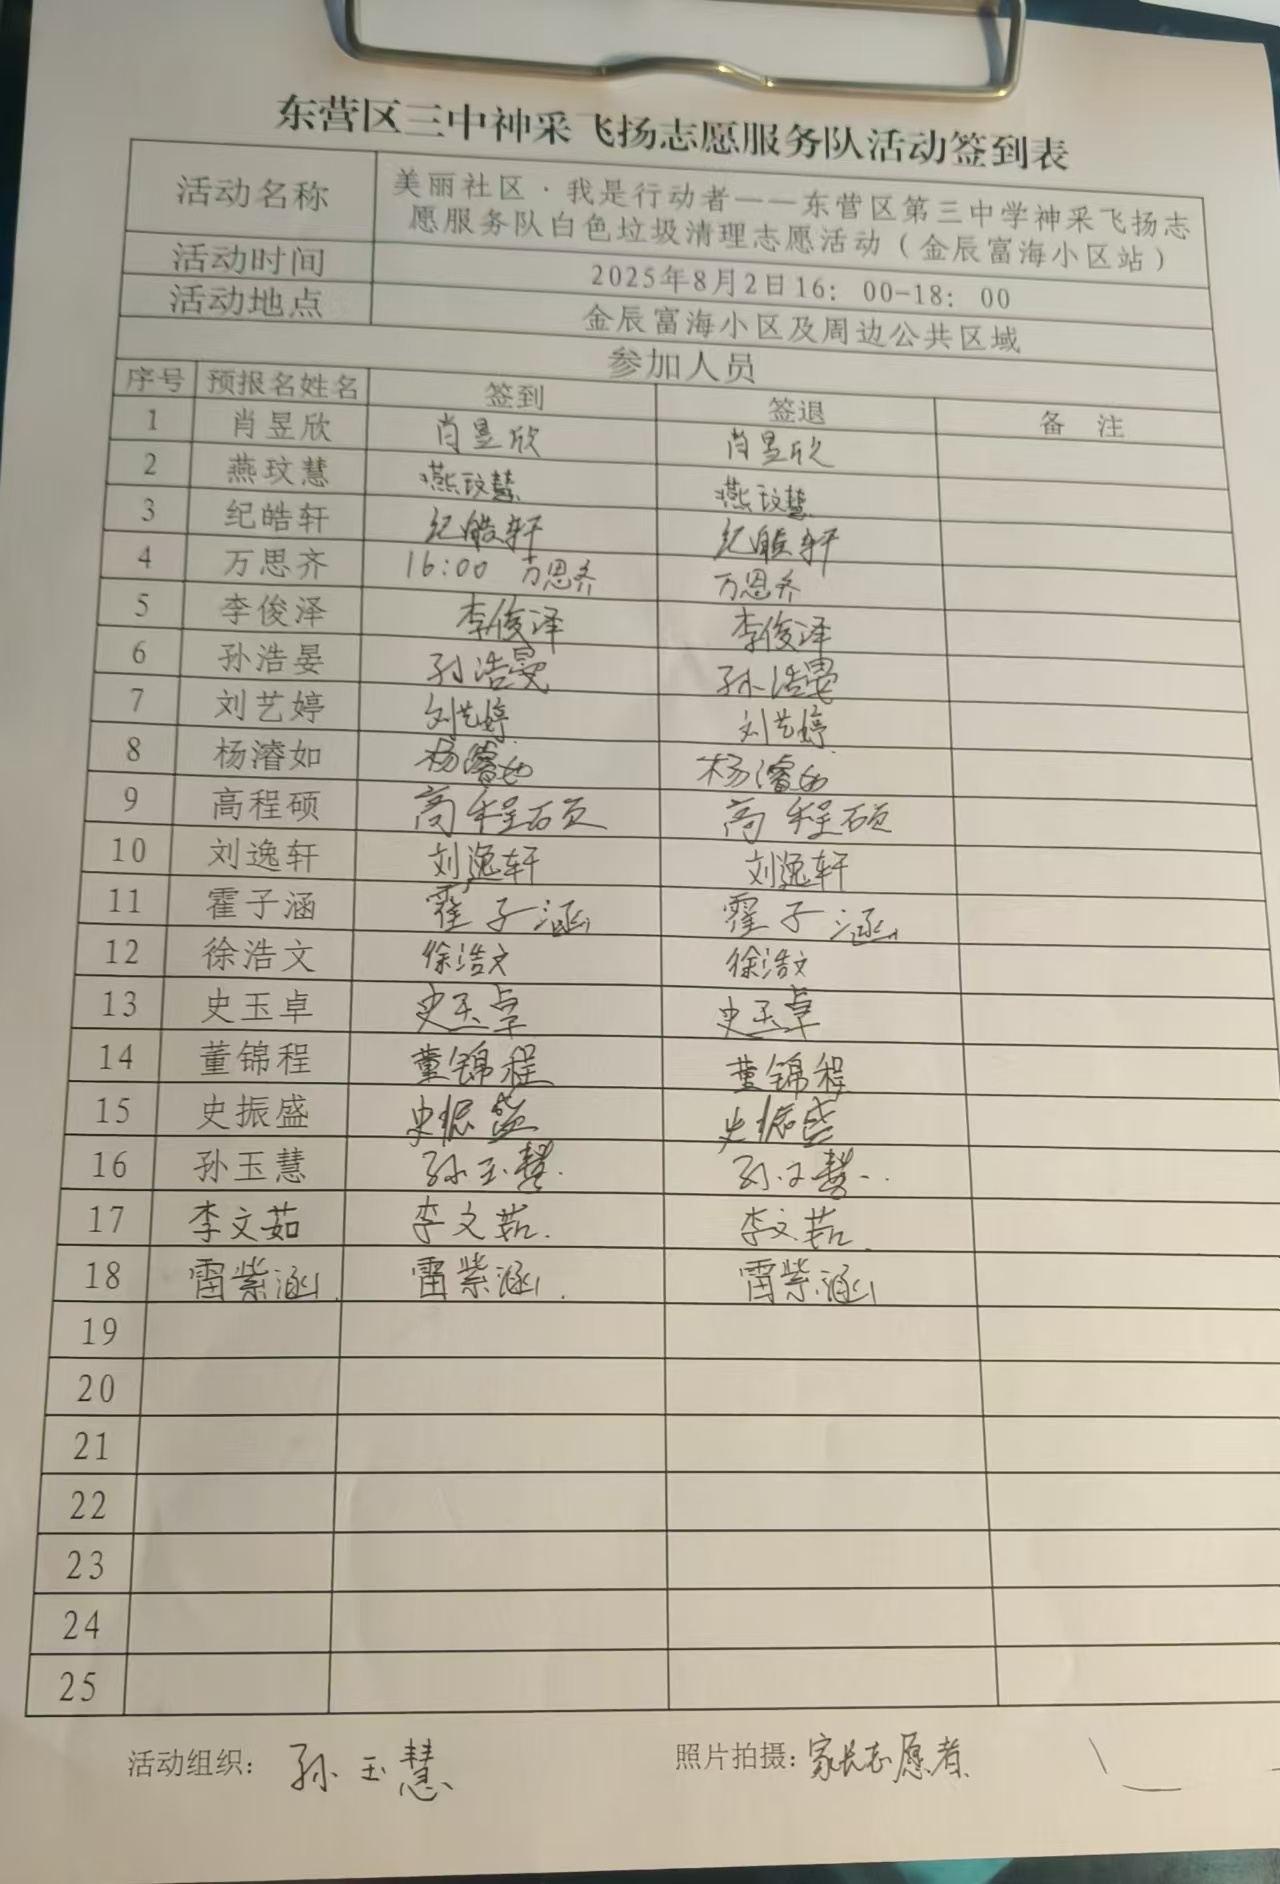 东营区三中神采飞扬志愿服务队活动签到表
活动名称 美丽社区·我是行动者——东营区第三中学神采飞扬志
愿服务队白色垃圾清理志愿活动（金辰富海小区站）
活动时间 2025年8月2日16：00-18：00
活动地点 金辰富海小区及周边公共区域
参加人员
序号 预报名姓名 签到 签退 备 注
1 肖昱欣 肖昱欣 肖昱欣
2 燕玟慧 燕玟慧 燕玟慧
3 纪皓轩 纪皓轩 纪皓轩
4 万思齐 16:00 万思齐 万思齐
5 李俊泽 李俊泽 李俊泽
6 孙浩晏 孙浩晏 孙浩晏
7 刘艺婷 刘艺婷 刘艺婷
8 杨濬如 杨濬如 杨濬如
9 高程硕 高程硕 高程硕
10 刘逸轩 刘逸轩 刘逸轩
11 霍子涵 霍子涵 霍子涵
12 徐浩文 徐浩文 徐浩文
13 史玉卓 史玉卓 史玉卓
14 董锦程 董锦程 董锦程
15 史振盛 史振盛 史振盛
16 孙玉慧 孙玉慧 孙玉慧
17 李文茹 李文茹 李文茹
18 雷紫涵 雷紫涵 雷紫涵
19
20
21
22
23
24
25
活动组织：孙玉慧 照片拍摄：家长志愿者